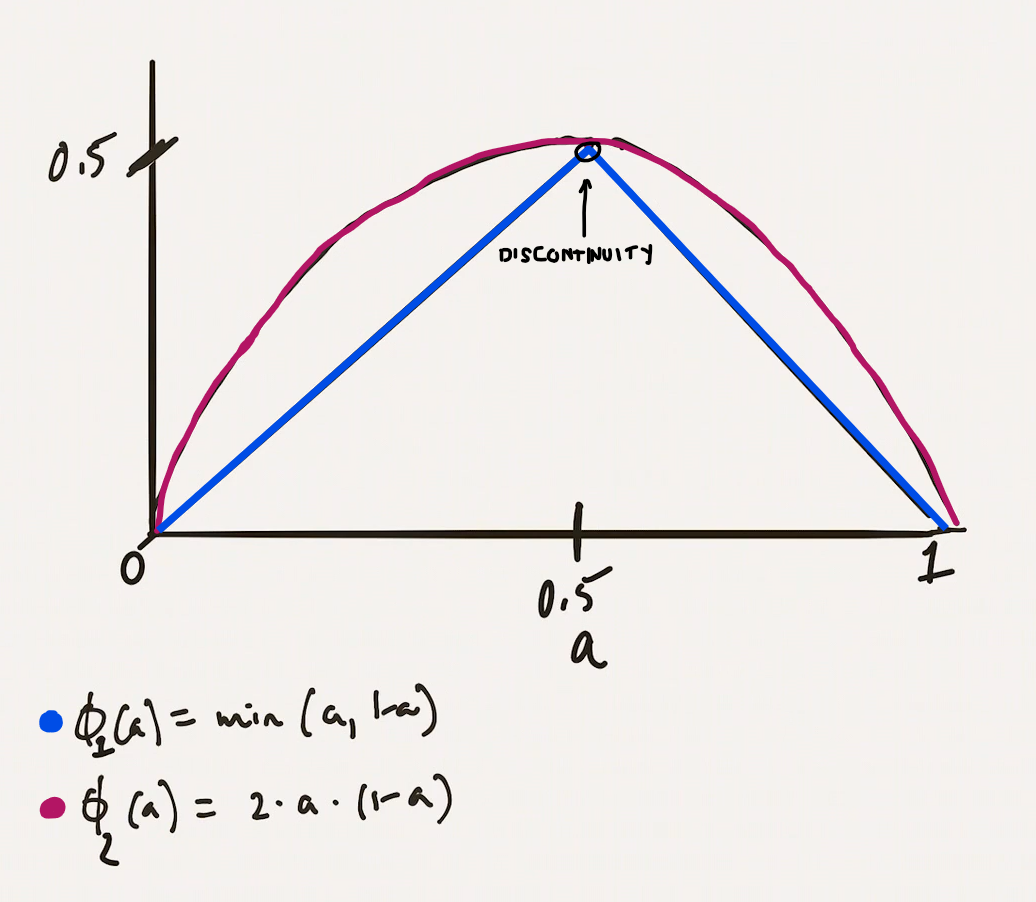 0.5
DISCONTINUITY
0
0.5
1
a
ϕ₁(a) = min (a, 1-a)
ϕ₂(a) = 2 · a · (1-a)